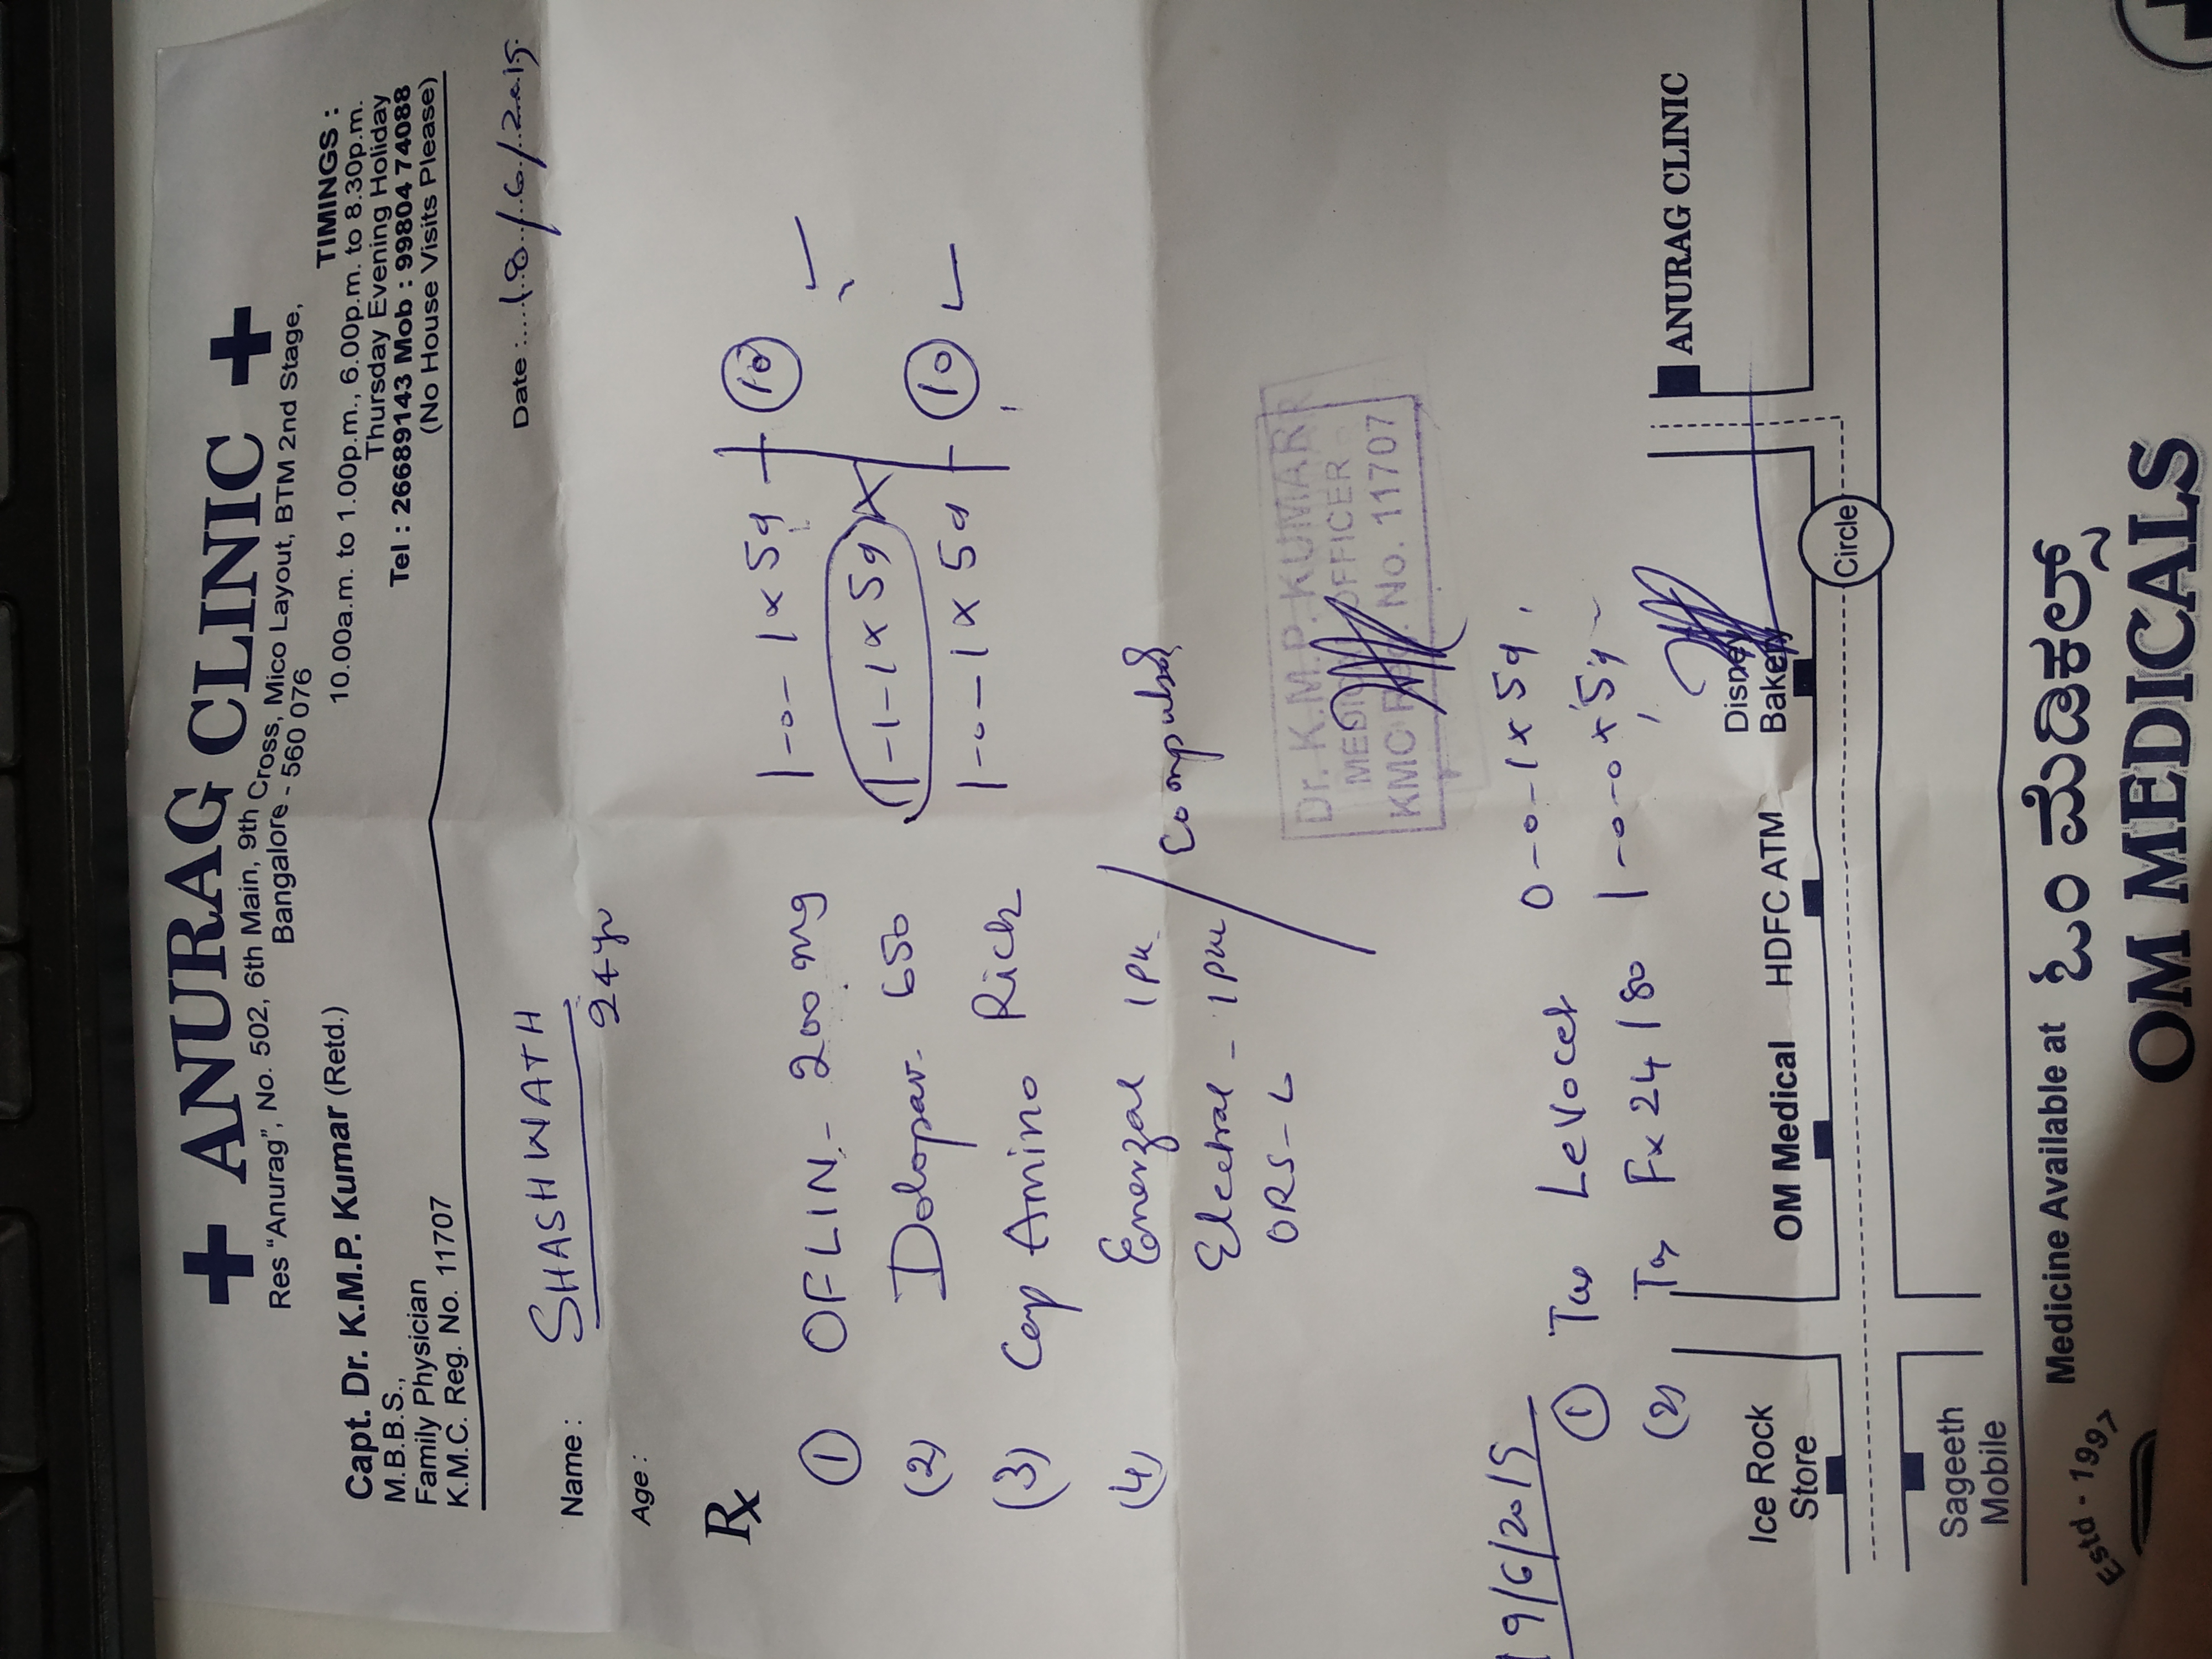 + ANURAG CLINIC +
Res "Anurag", No. 502, 6th Main, 9th Cross, Mico Layout, BTM 2nd Stage,
Bangalore - 560 076
Capt. Dr. K.M.P. Kumar (Retd.)
M.B.B.S.,
Family Physician
K.M.C. Reg. No. 11707
TIMINGS :
10.00a.m. to 1.00p.m., 6.00p.m. to 8.30p.m.
Thursday Evening Holiday
Tel : 26689143 Mob : 99804 74088
(No House Visits Please)
Date : 18/6/2015
Name : SHASHWATH
Age : 24 yr
Rx
(1) OFLIN - 200 mg 1-0-1 x 5d (10)
(2) Dolopar - 650 1-1-1 x 5d
(3) Cap Amino Rich 1-0-1 x 5d (10)
(4) Enerzal 1pk
Electral - 1pk / compulsory
ORS - L
Dr. K.M.P. KUMAR
MEDICAL OFFICER
KMC Reg. No. 11707
19/6/2015
(1) Tab Levocet 0-0-1 x 5d
(2) Tab Fx 24 / 80 1-0-0 x 5d
ANURAG CLINIC
Ice Rock Store
OM Medical
HDFC ATM
Disney Bakery
Circle
Sageeth Mobile
Estd - 1997
Medicine Available at ಓಂ ಮೆಡಿಕಲ್ಸ್
OM MEDICALS